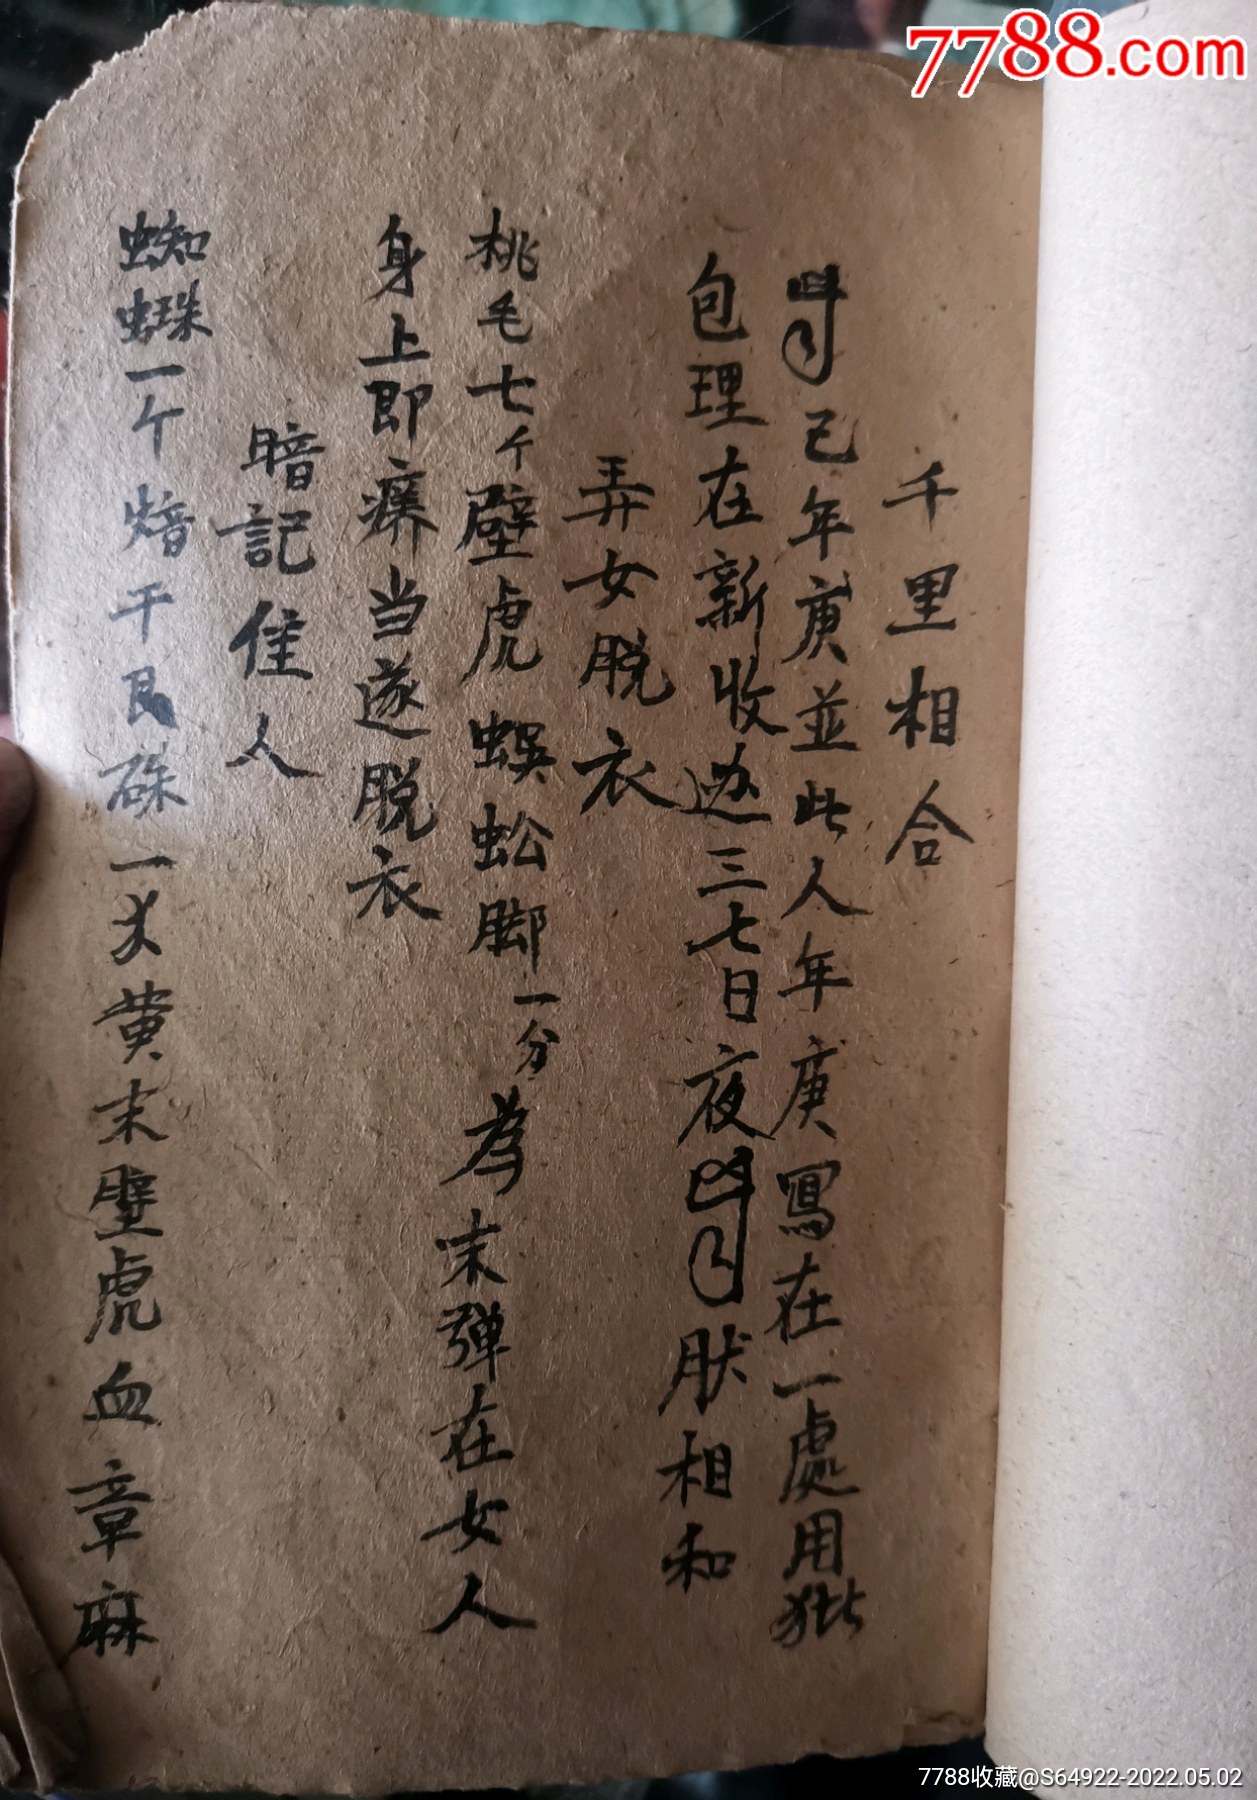 7788.com
千里相合
己年庚並此人年庚寫在一處用
包理在新收 三七日夜 肰相和
弄女脱衣
桃毛七个壁虎蜈蚣脚一分為末弹在女人
身上即痳当遂脱衣
暗記住人
蜘蛛一个焙干 硃一 黄末壁虎血章麻
7788收藏@S64922-2022.05.02